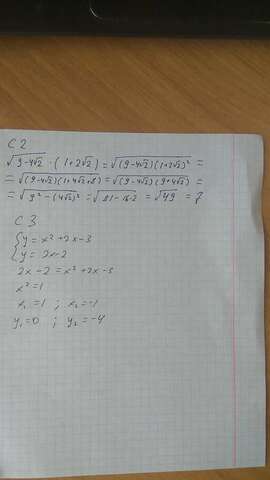 C2
√(9-4√2) · (1+2√2) = √((9-4√2)(1+2√2)²) =
= √((9-4√2)(1+4√2+8)) = √((9-4√2)(9+4√2)) =
= √(9²-(4√2)²) = √(81-16·2) = √49 = 7
C3
{y = x²+2x-3
{y = 2x-2
2x-2 = x²+2x-3
x² = 1
x₁ = 1 ; x₂ = -1
y₁ = 0 ; y₂ = -4